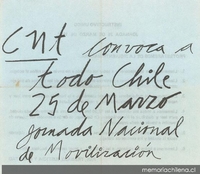 CNT Convoca a
todo Chile
25 de Marzo
jornada Nacional
de Movilización
memoriachilena.cl